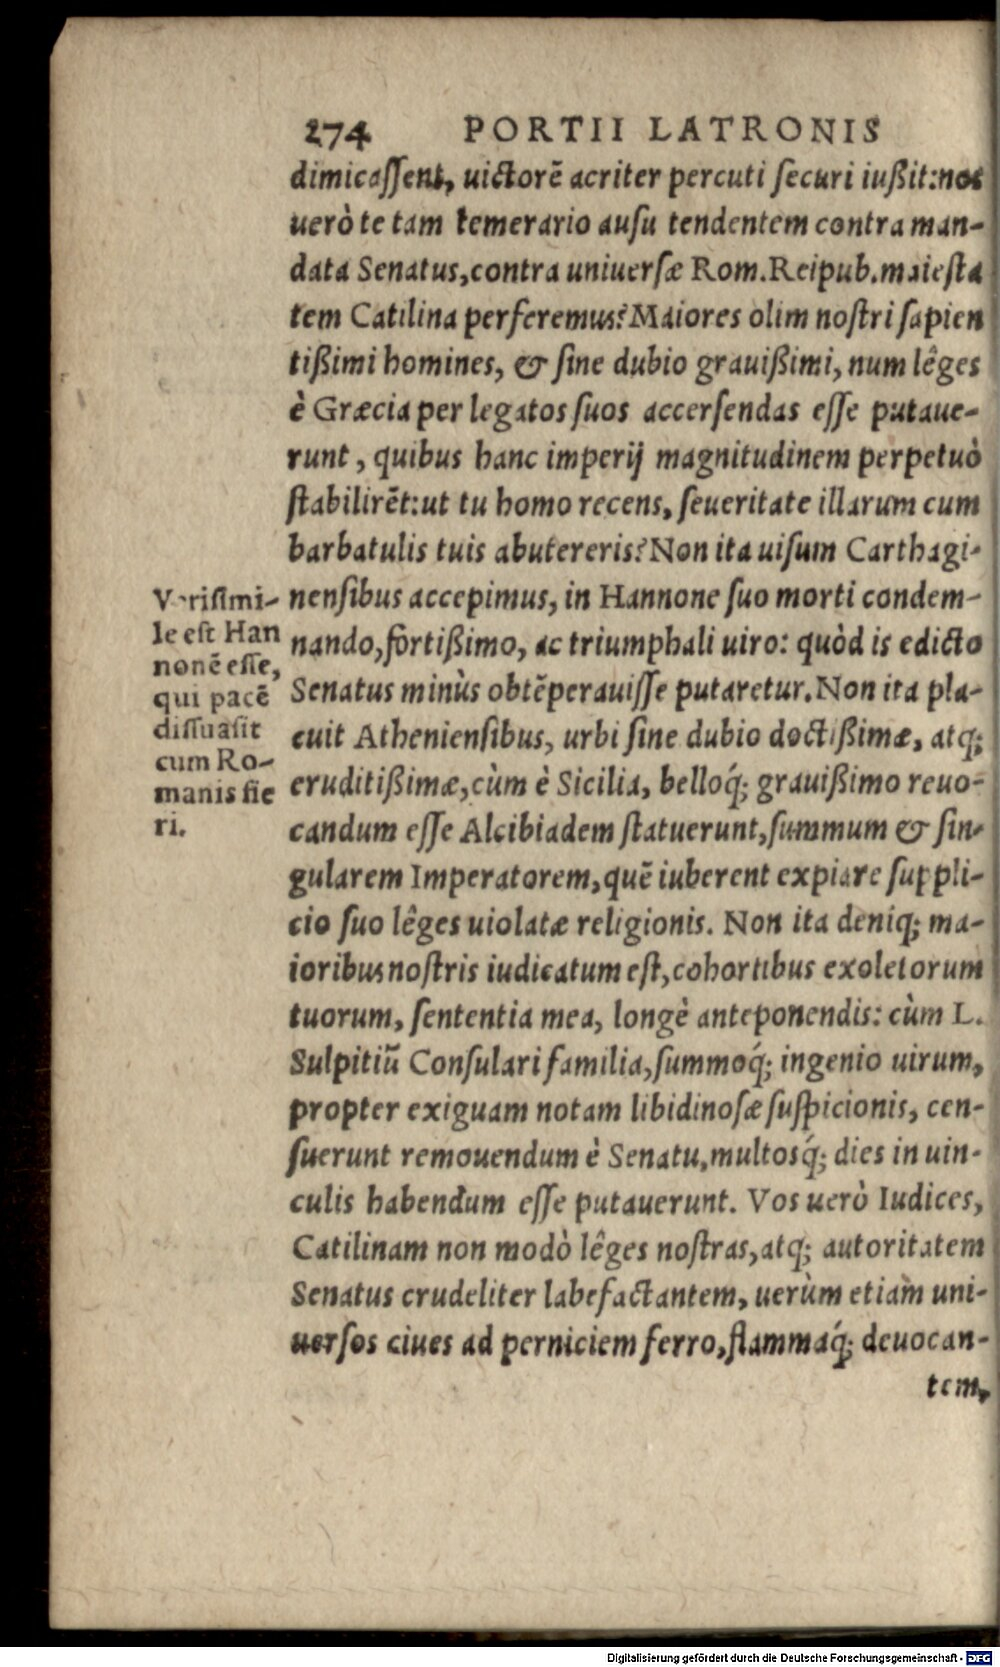 274 PORTII LATRONIS
dimicassent, uictorē acriter percuti securi iußit: nos
uerò te tam temerario ausu tendentem contra man-
data Senatus, contra uniuersæ Rom. Reipub. maiesta
tem Catilina perferemus? Maiores olim nostri sapien
tißimi homines, & sine dubio grauißimi, num lêges
è Græcia per legatos suos accersendas esse putaue-
runt, quibus hanc imperij magnitudinem perpetuò
stabilirēt: ut tu homo recens, seueritate illarum cum
barbatulis tuis abutereris? Non ita uisum Carthagi-
nensibus accepimus, in Hannone suo morti condem-
nando, fortißimo, ac triumphali uiro: quòd is edicto
Senatus minùs obtēperauisse putaretur. Non ita pla-
cuit Atheniensibus, urbi sine dubio doctißimæ, atq;
eruditißimæ, cùm è Sicilia, belloq́; grauißimo reuo-
candum esse Alcibiadem statuerunt, summum & sin-
gularem Imperatorem, quē iuberent expiare suppli-
cio suo lêges uiolatæ religionis. Non ita deniq; ma-
ioribus nostris iudicatum est, cohortibus exoletorum
tuorum, sententia mea, longè anteponendis: cùm L.
Sulpitiū Consulari familia, summoq́; ingenio uirum,
propter exiguam notam libidinosæ suspicionis, cen-
suerunt remouendum è Senatu, multosq́; dies in uin-
culis habendum esse putauerunt. Vos uerò Iudices,
Catilinam non modò lêges nostras, atq; autoritatem
Senatus crudeliter labefactantem, uerùm etiam uni-
uersos ciues ad perniciem ferro, flammaq́; deuocan-
tem,
Verisimi-
le est Han
nonē esse,
qui pacē
dissuasit
cum Ro-
manis fie
ri.
Digitalisierung gefördert durch die Deutsche Forschungsgemeinschaft - DFG